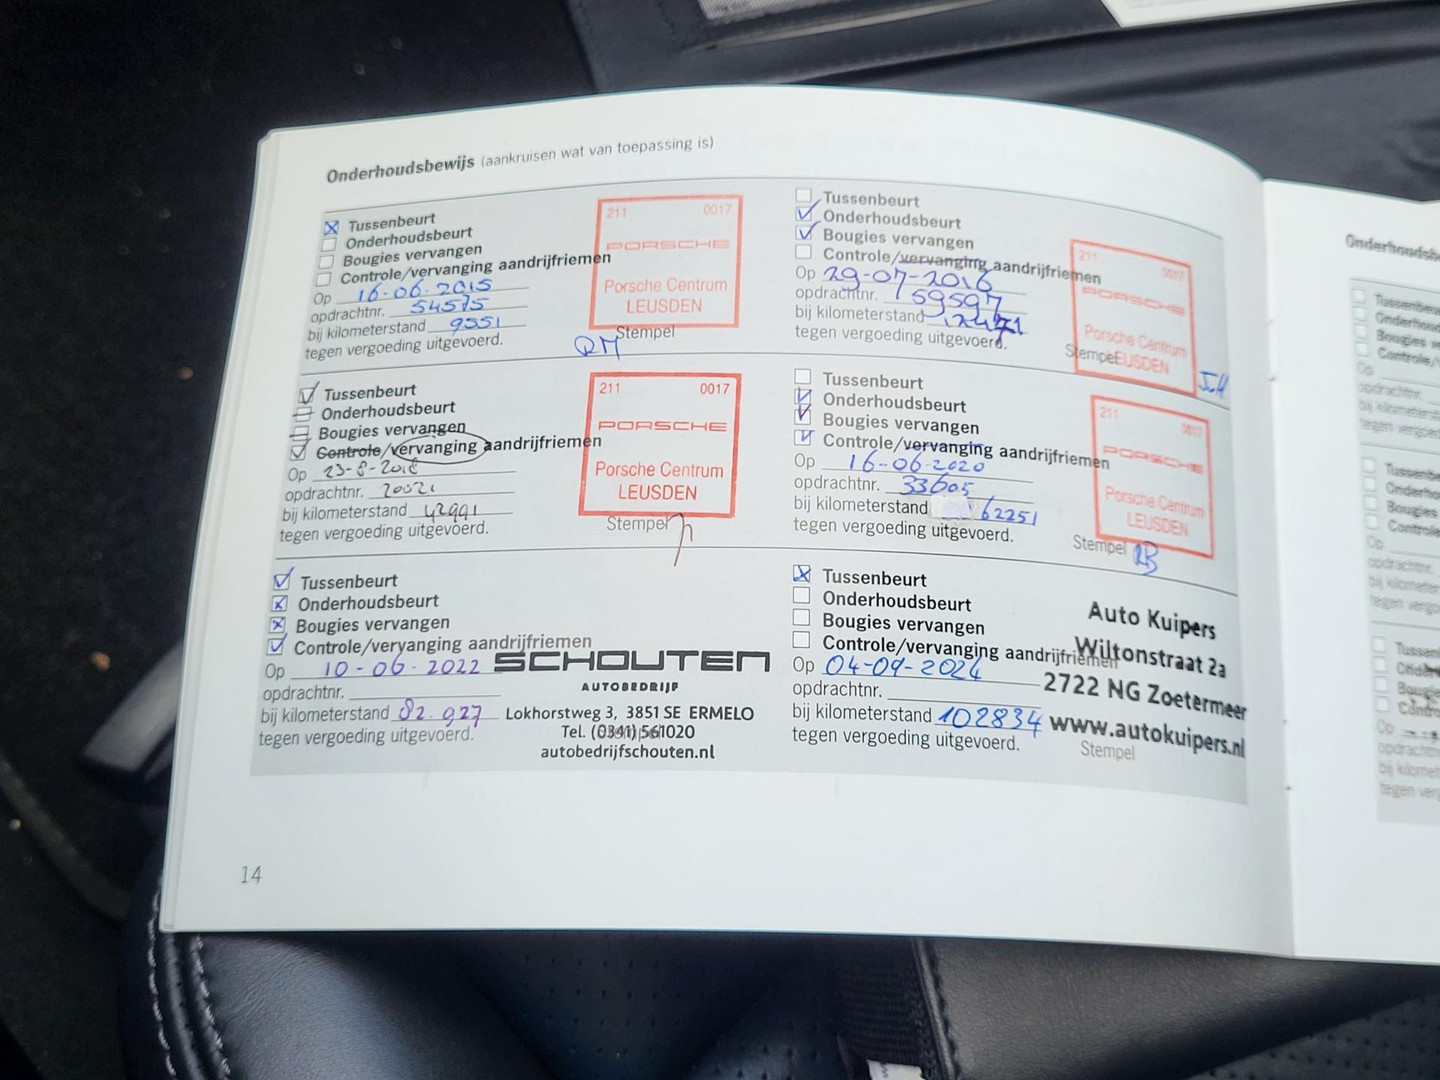 Onderhoudsbewijs (aankruisen wat van toepassing is)
Tussenbeurt
Onderhoudsbeurt
Bougies vervangen
Controle/vervanging aandrijfriemen
Op 16-06-2015
opdrachtnr. 54575
bij kilometerstand 9551
tegen vergoeding uitgevoerd.
211 0017
PORSCHE
Porsche Centrum
LEUSDEN
Stempel
Tussenbeurt
Onderhoudsbeurt
Bougies vervangen
Controle/vervanging aandrijfriemen
Op 29-07-2016
opdrachtnr. 159597
bij kilometerstand
tegen vergoeding uitgevoerd.
211 0017
PORSCHE
Porsche Centrum
LEUSDEN
Stempel
Tussenbeurt
Onderhoudsbeurt
Bougies vervangen
Controle/vervanging aandrijfriemen
Op 23-8-2018
opdrachtnr. 20021
bij kilometerstand 42991
tegen vergoeding uitgevoerd.
211 0017
PORSCHE
Porsche Centrum
LEUSDEN
Stempel
Tussenbeurt
Onderhoudsbeurt
Bougies vervangen
Controle/vervanging aandrijfriemen
Op 16-06-2020
opdrachtnr. 33605
bij kilometerstand 62251
tegen vergoeding uitgevoerd.
211 0017
PORSCHE
Porsche Centrum
LEUSDEN
Stempel
Tussenbeurt
Onderhoudsbeurt
Bougies vervangen
Controle/vervanging aandrijfriemen
Op 10-06-2022
opdrachtnr.
bij kilometerstand 82.927
tegen vergoeding uitgevoerd.
SCHOUTEN
AUTOBEDRIJF
Lokhorstweg 3, 3851 SE ERMELO
Tel. (0341) 561020
autobedrijfschouten.nl
Tussenbeurt
Onderhoudsbeurt
Bougies vervangen
Controle/vervanging aandrijfriemen
Op 04-09-2024
opdrachtnr.
bij kilometerstand 102834
tegen vergoeding uitgevoerd.
Auto Kuipers
Wiltonstraat 2a
2722 NG Zoetermeer
www.autokuipers.nl
Stempel
14